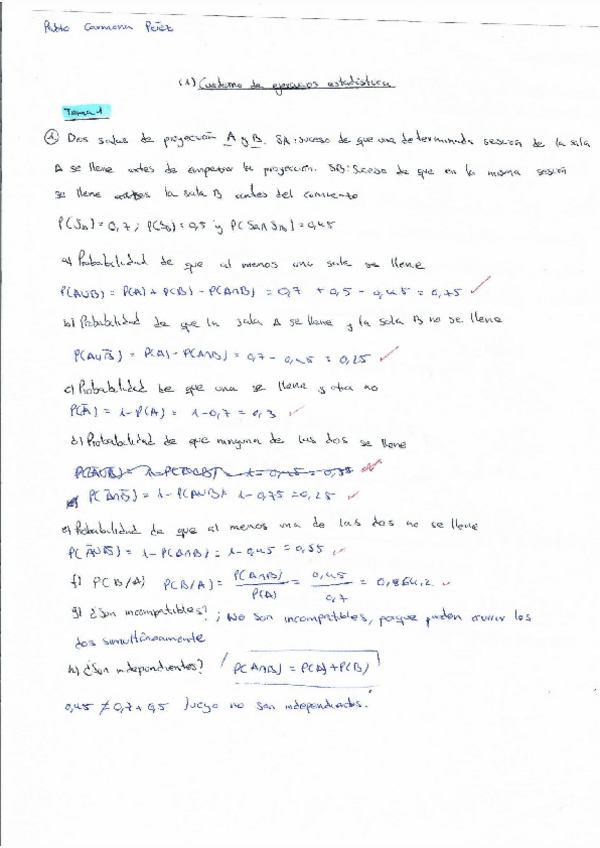 Pablo Carmona Pérez
(1) Cuaderno de ejercicios estadística
Tema 1
1 Dos salas de proyección A y B. SA: suceso de que una determinada sesión de la sala
A se llene antes de empezar la proyección. SB: Suceso de que en la misma sesión
se llene la sala B antes del comienzo
P(SA) = 0,7 ; P(SB) = 0,5 y P(SA∩SB) = 0,45
a) Probabilidad de que al menos una sala se llene
P(AUB) = P(A) + P(B) - P(A∩B) = 0,7 + 0,5 - 0,45 = 0,75
b) Probabilidad de que la sala A se llene y la sala B no se llene
P(AUB̄) = P(A) - P(A∩B) = 0,7 - 0,45 = 0,25
c) Probabilidad de que una se llene y otra no
P(Ā) = 1 - P(A) = 1 - 0,7 = 0,3
d) Probabilidad de que ninguna de las dos se llene
P(Ā∩B̄) = 1 - P(AUB) = 1 - 0,75 = 0,25
e) Probabilidad de que al menos una de las dos no se llene
P(ĀUB̄) = 1 - P(A∩B) = 1 - 0,45 = 0,55
f) P(B/A) P(B/A) = P(A∩B) / P(A) = 0,45 / 0,7 = 0,8642
g) ¿Son incompatibles? ; No son incompatibles, porque pueden ocurrir los
dos simultáneamente
h) ¿Son independientes? P(A∩B) = P(A) + P(B)
0,45 ≠ 0,7 + 0,5 luego no son independientes.